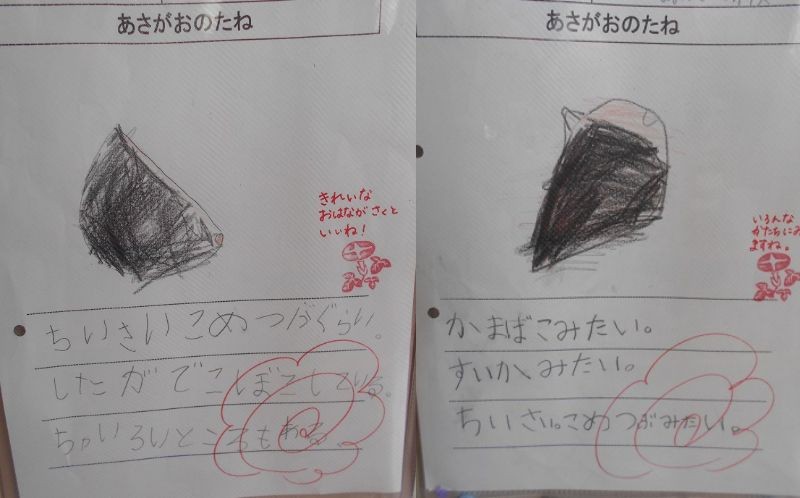 あさがおのたね
きれいな
おはながさくと
いいね!
ちいさいこめつぶぐらい。
したがでこぼこしている。
ちゃいろいところもある
あさがおのたね
いろんな
かたちにみ
ますね。
かまばこみたい。
すいかみたい。
ちいさい。こめつぶみたい。